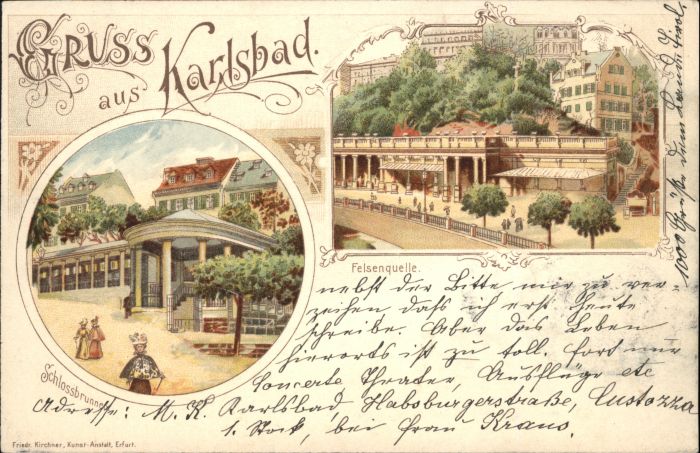 Gruss
aus Karlsbad.
Felsenquelle.
Schlossbrunn
1000 Grüße dem Land Tirol,
nebst der Bitte mir zu ver-
zeihen dass ich erst heute
schreibe. Aber das Leben
hierorts ist zu toll. fort nur
Concerte Theater, Ausflüge etc
Adresse: M. K. Karlsbad, Habsburgerstraße, Custozza
1. Stock, bei Frau Kraus.
Friedr. Kirchner, Kunst-Anstalt, Erfurt.